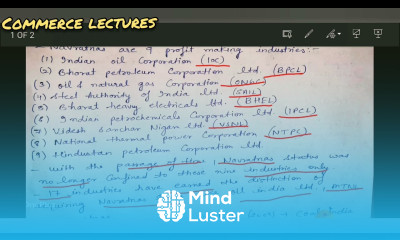 COMMERCE LECTURES
1 OF 2
- Navratnas are 9 profit making industries:-
(1) Indian oil Corporation (IOC)
(2) Bharat petroleum Corporation ltd. (BPCL)
(3) Oil & natural gas Corporation (ONGC)
(4) Steel Authority of India ltd. (SAIL)
(5) Bharat heavy electricals ltd. (BHEL)
(6) Indian petrochemicals Corporation ltd. (IPCL)
(7) Videsh Sanchar Nigam ltd. (VSNL)
(8) National thermal power Corporation (NTPC)
(9) Hindustan petroleum Corporation ltd.
- With the passage of time, Navratnas status was
no longer confined to these nine industries only
17 industries have earned the distinction of
Navratnas oil india ltd, MTNL
Mind
Luster